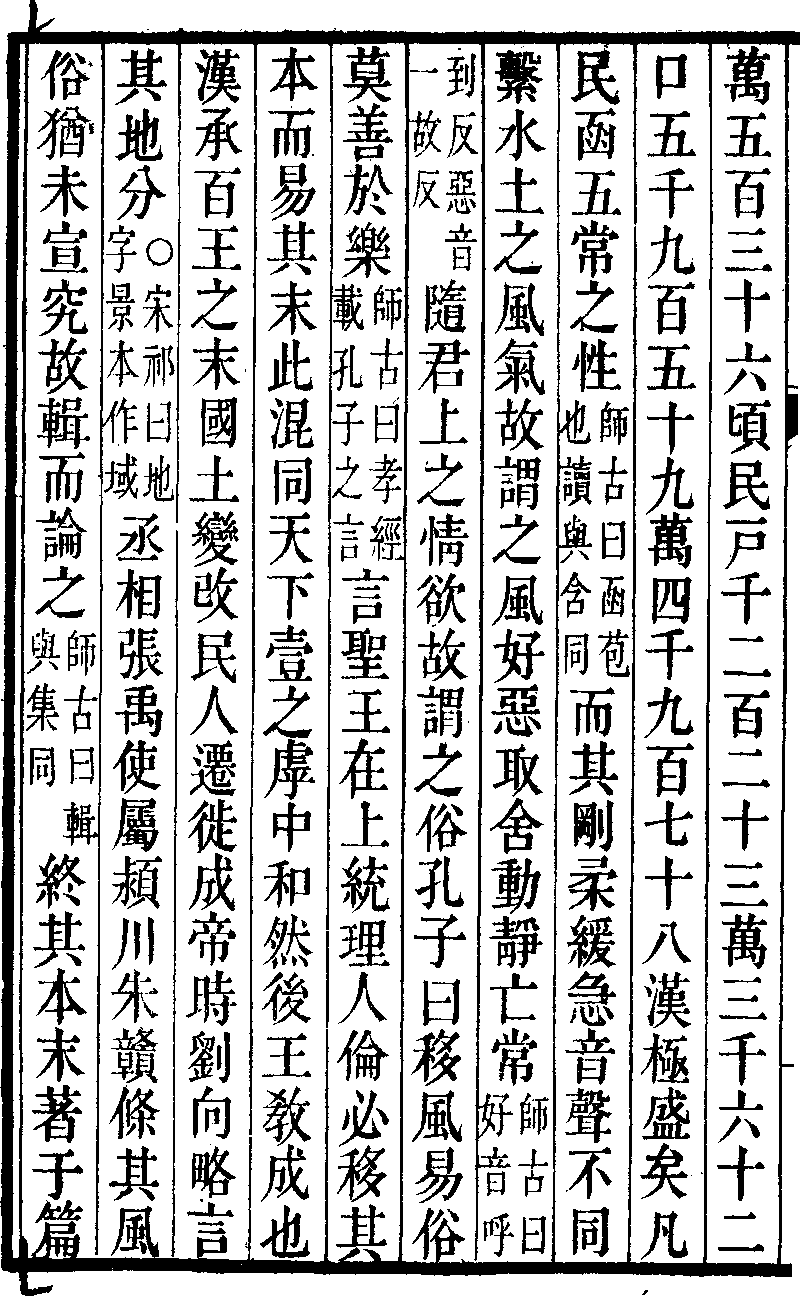 萬五百三十六頃民戸千二百二十三萬三千六十二
口五千九百五十九萬四千九百七十八漢極盛矣凡
民函五常之性師古曰函苞也讀與含同而其剛柔緩急音聲不同
繫水土之風氣故謂之風好惡取舍動靜亡常師古曰好音呼
到反惡音一故反隨君上之情欲故謂之俗孔子曰移風易俗
莫善於樂師古曰孝經載孔子之言言聖王在上統理人倫必移其
本而易其末此混同天下壹之虖中和然後王教成也
漢承百王之末國土變改民人遷徙成帝時劉向略言
其地分○宋祁曰地字景本作域丞相張禹使屬潁川朱贛條其風
俗猶未宣究故輯而論之師古曰輯與集同終其本末著于篇